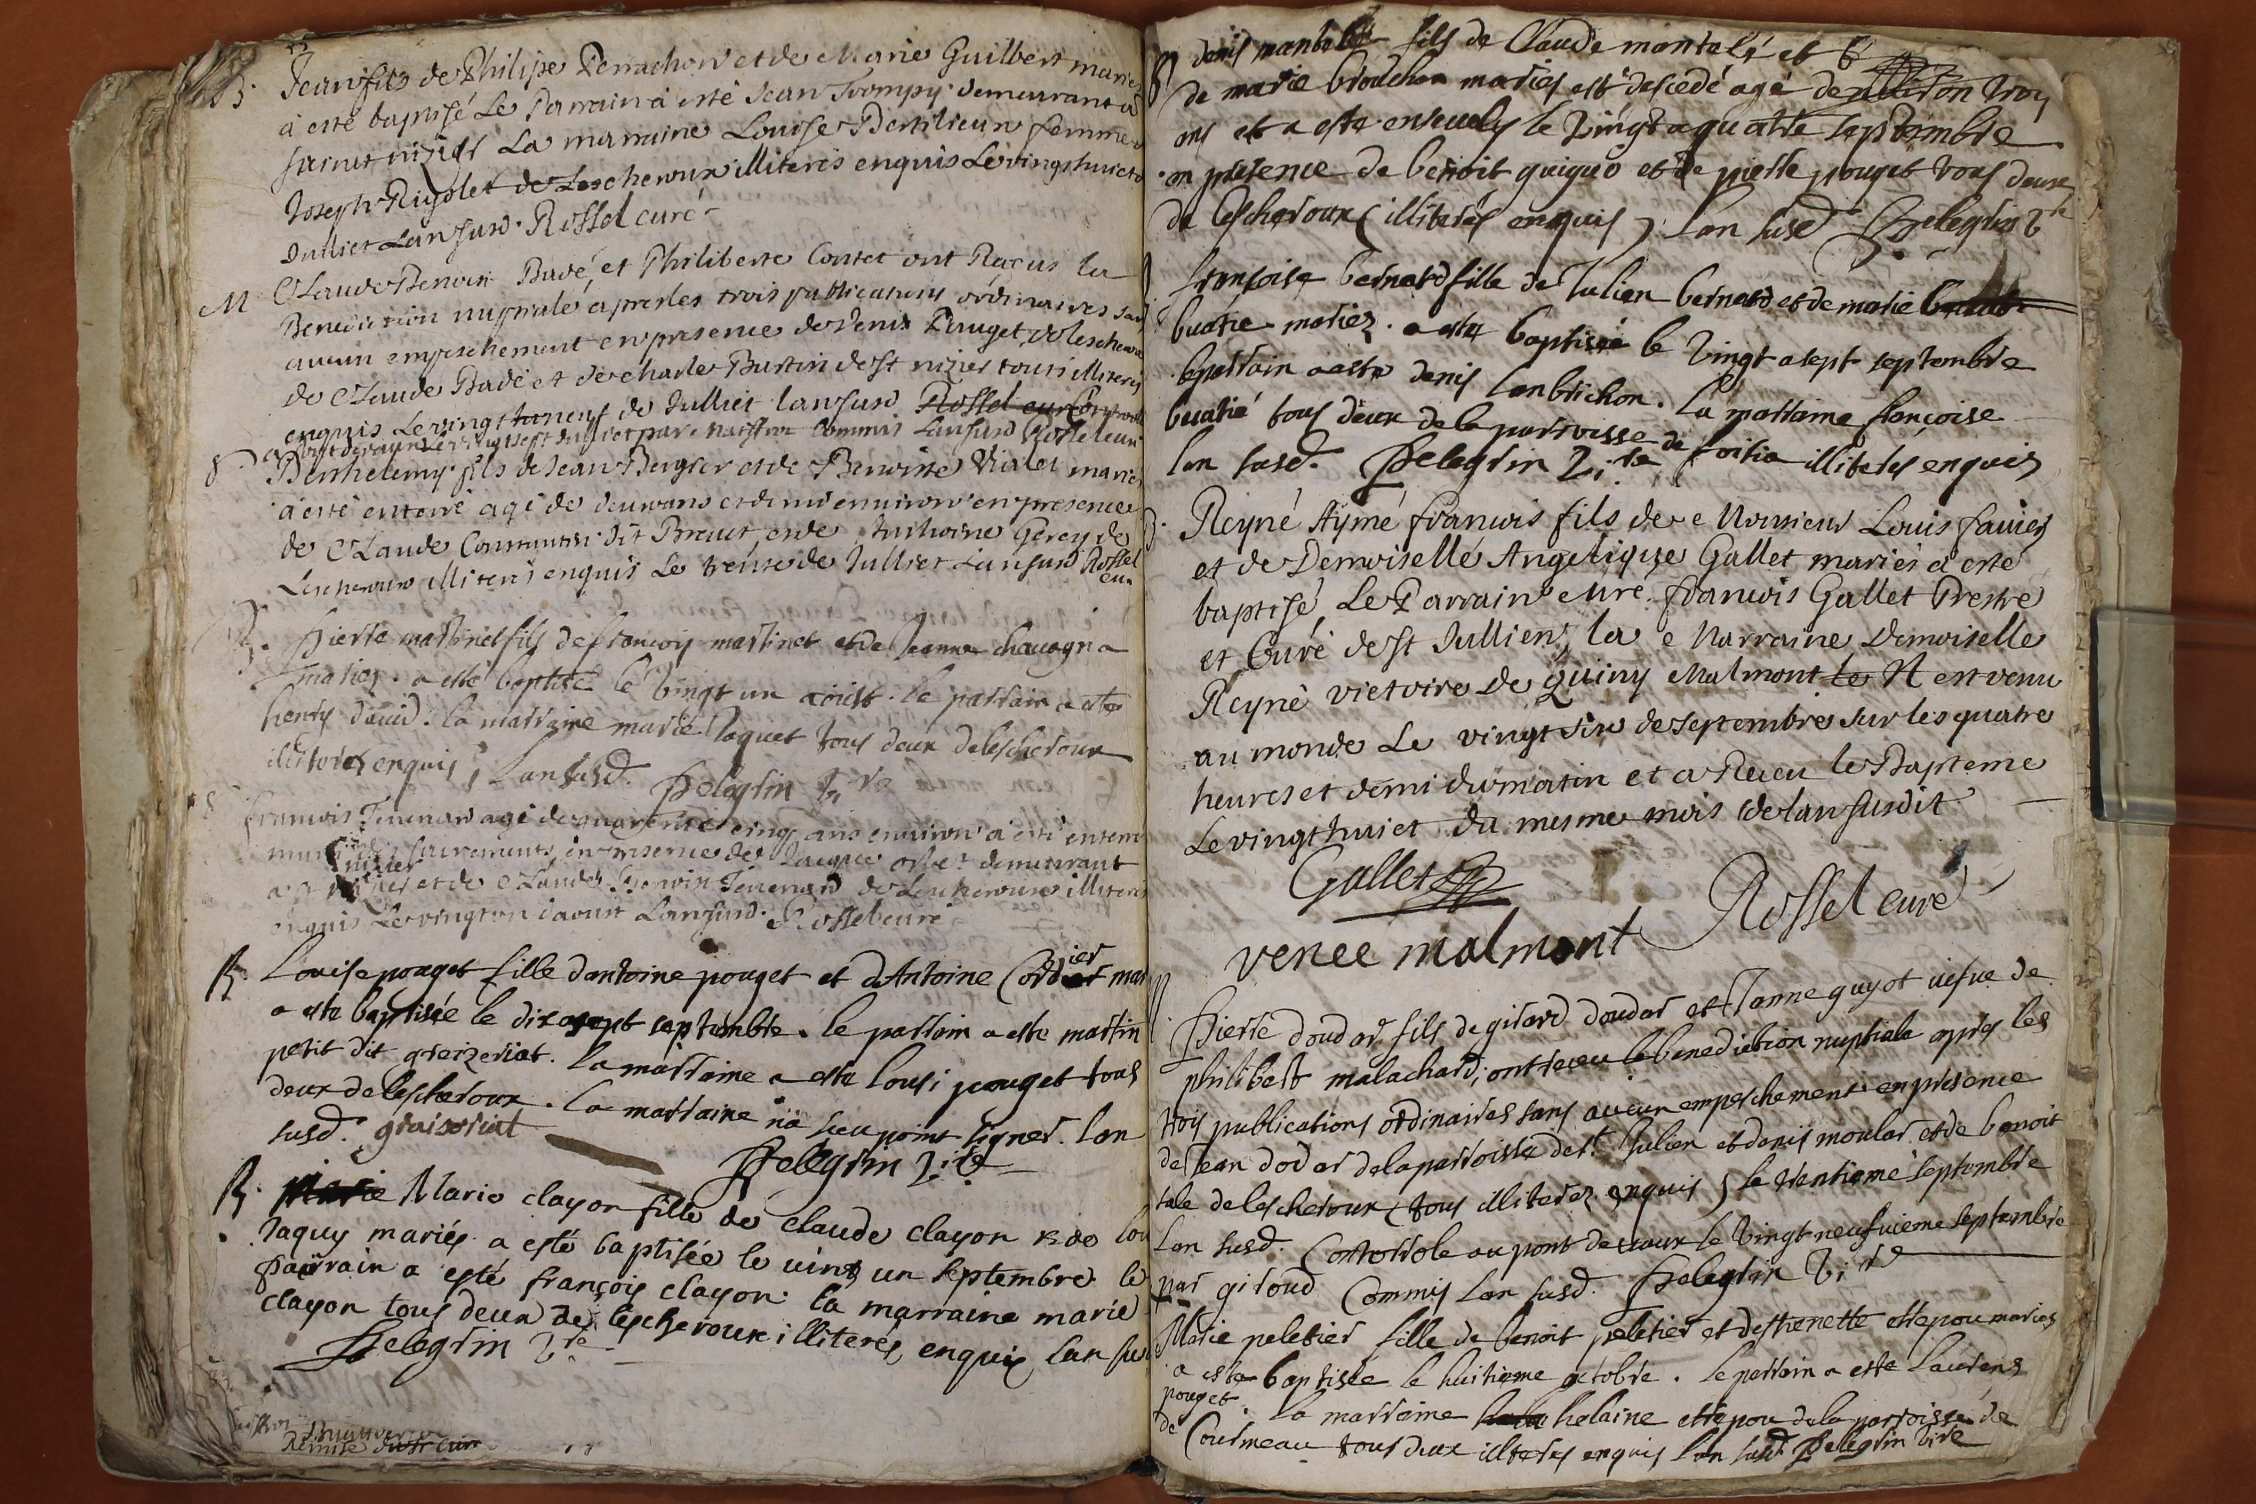 B. Jean fils de Philipe Perrachon et de Marie Guilbert mariés
à esté baptisé Le Parrain à esté Jean Trompy demeurant à
saint nizier La marraine Louise Bertilieur femme
Joseph Rigolet de Lescheroux illiterés enquis Le vingthuict
Julliet Lan susd. Rossel curé
M Claude Benoit Badé, et Philiberte Contet ont Reçus la
Benediction nuptiale apres les trois publications ordinaires sans
aucun empeschement en presence de Denis Pouget de lescheroux
de Claude Badé et de charle Burtin de st nizier tous illiterés
enquis Le vingt neuf de Julliet lan susd Rossel curé
le vingt sept Julliet par commis Lan susd Rossel curé
S. Berthelemy fils de Jean Bergier et de Benoitte Violet mariés
à esté enterré agé de deux ans et demi environ en presence
de Claude Constantin dit Brout, et de Anthoine Gerey de
Lescheroux illiterés enquis Le trente de Julliet Lan susd Rossel
curé
B. Pierre martinet fils de francois martinet et de Jeanne chavagna
mariez. a esté baptisé le vingt un aoust. le parrain a este
henry david. la marraine marie Paquet tous deux de lescheroux
illiterés enquis, Lan susd. Pelegrin vire
S. francois Tevenard agé de quarente cinq ans environ à esté enterré
muni des sacrements, en presence de Jacque demeurant
a st nizier et de Claude Benoit Tevenard de Lescheroux illiterés
enquis Le vingt un d'aoust Lan susd. Rossel curé
B. Louise pouget fille dantoine pouget et dAntoine Cordier mar
a este baptisée le dix a sept septembre. le parrain a este martin
petit dit greizeriat. la marraine a este Louise pouget tous
deux de lescheroux. La marraine na sceu point signer. lan
susd. graiseriat
Pelegrin vire
B. Marie clayon fille de claude clayon & de lou
Jaquy mariés a esté baptisée le vint un septembre le
parrain a esté françois clayon. la marraine marie
clayon tous deux de lescheroux illiterés enquis lan sus
Pelegrin vre
S denis mantelét fils de Claude mantelét et
de marie brouchon mariés est descedé agé denviron troy
ans et a este ensevely le vingt a quatre septembre
en presence de benoit guiguo et de pierre pouget tous deux
de lescheroux (illiterés enquis) lan susd Pelegrin vre
B françoise bernard fille de Julien bernard et de marie
buatie mariez. a este baptisée le vingt a sept septembre
le parrain a este denis lanbrichon. la marraine françoise
buatié tous deux de la parroisse de foitia illiterés enquis
lan susd. Pelegrin vire
B. Reyné Aymé francois fils de Monsieur Louis favier
et de Demoiselle Angelique Gallet mariés a esté
baptisé, Le Parrain Mre francois Gallet Prestre
et Curé de st Jullien, la Marraine Demoiselle
Reyné victoire De Quiny Malmont le N est venu
au monde Le vingt six de septembre sur les quatre
heures et demi du matin et a Receu le Bapteme
Le vingt huict du mesme mois de lan susdit
Gallet
Rossel curé
venee malmont
M. Pierre doudar fils de girard doudar et Janne guyot vefve de
philibert malachard; ont receu la benediction nuptiale apres les
trois publications ordinaires sans aucun empeschement en presence
de Jean dodar de la parroisse de st Julien et denis moular et de benoit
tale de lescheroux (tous illiterez enquis) le trentieme septembre
Lan susd. Controrole au pont de vaux le vingt neufuieme septembre
par giroud Commis Lan susd. Pelegrin vire
Marie peletier fille de benoit peletier et destienette estepou mariés
a este baptisée le huitieme octobre. le parrain a este laurens
pouget. la marraine helaine estepou de la parroisse de
de Courmeau tous deux illiterés enquis lan susd Pelegrin vire